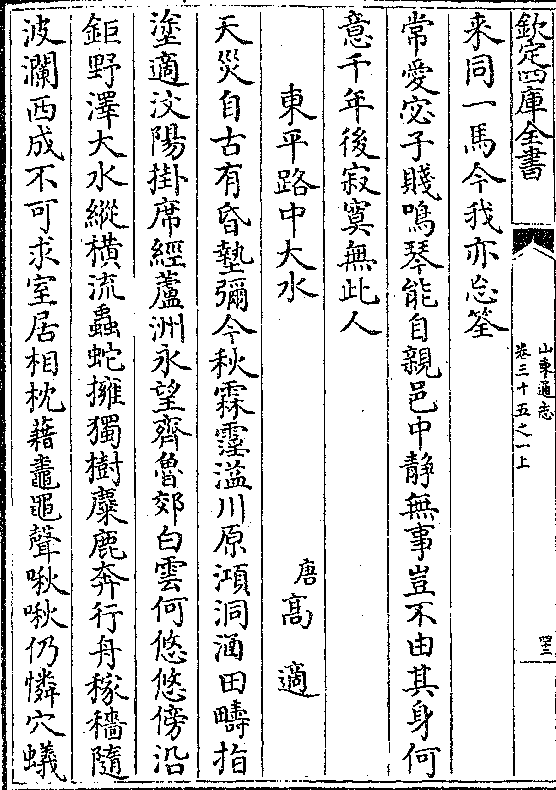 欽定四庫全書
山東通志
卷三十五之一上
来同一馬今我亦忘筌
常愛宓子賤鳴琴能自親邑中靜無事豈不由其身何
意千年後寂寞無此人
東平路中大水
唐高適
天災自古有昏墊彌今秋霖霪溢川原澒洞涵田疇指
塗適汶陽掛席經蘆洲永望齊魯郊白雲何悠悠傍沿
鉅野澤大水縱橫流蟲蛇擁獨樹麋鹿奔行舟稼穡隨
波瀾西成不可求室居相枕藉䵷黽聲啾啾仍憐穴蟻